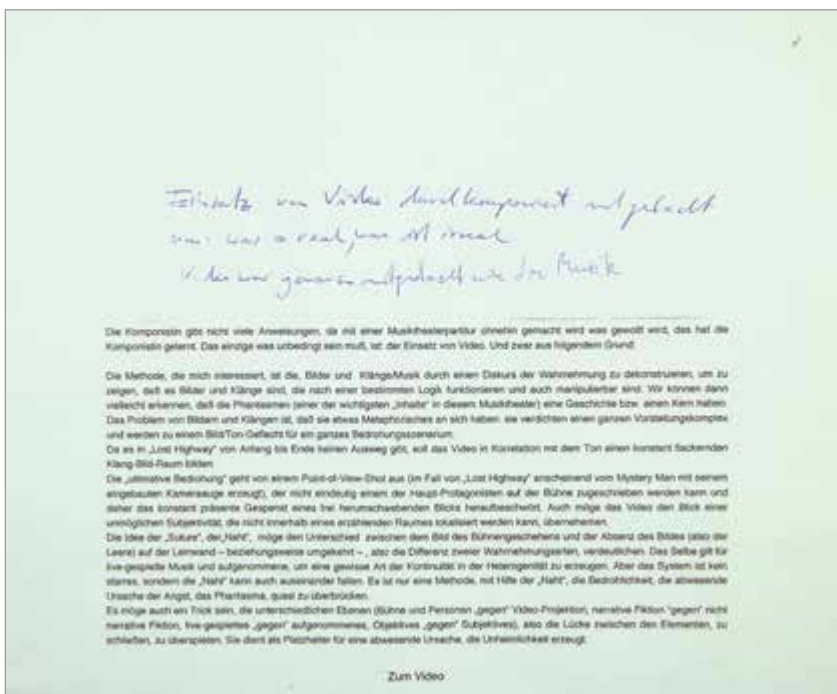 Einsatz von Video durchkomponiert mitgedacht
was ist real, was ist irreal
Video war genauso mitgedacht wie die Musik
Die Komponistin gibt nicht viele Anweisungen, da mit einer Musiktheaterpartitur ohnehin gemacht wird was gewollt wird, das hat die
Komponistin gelernt. Das einzige was unbedingt sein muß, ist der Einsatz von Video. Und zwar aus folgendem Grund:
Die Methode, die mich interessiert, ist die, Bilder und Klänge/Musik durch einen Diskurs der Wahrnehmung zu dekonstruieren, um zu
zeigen, daß es Bilder und Klänge sind, die nach einer bestimmten Logik funktionieren und auch manipulierbar sind. Wir können dann
vielleicht erkennen, daß die Phantasmen (einer der wichtigsten „Inhalte" in diesem Musiktheater) eine Geschichte bzw. einen Kern haben.
Das Problem von Bildern und Klängen ist, daß sie etwas Metaphorisches an sich haben: sie verdichten einen ganzen Vorstellungskomplex
und werden zu einem Bild/Ton-Geflecht für ein ganzes Bedrohungsszenarium.
Da es in „Lost Highway" von Anfang bis Ende keinen Ausweg gibt, soll das Video in Korrelation mit dem Ton einen konstant flackernden
Klang-Bild-Raum bilden.
Die „ultimative Bedrohung" geht von einem Point-of-View-Shot aus (im Fall von „Lost Highway" anscheinend vom Mystery Man mit seinem
eingebauten Kameraauge erzeugt), der nicht eindeutig einem der Haupt-Protagonisten auf der Bühne zugeschrieben werden kann und
daher das konstant präsente Gespenst eines frei herumschwebenden Blicks heraufbeschwört. Auch möge das Video den Blick einer
unmöglichen Subjektivität, die nicht innerhalb eines erzählenden Raumes lokalisiert werden kann, übernehmen.
Die Idee der „Suture", der „Naht", möge den Unterschied zwischen dem Bild des Bühnengeschehens und der Absenz des Bildes (also der
Leere) auf der Leinwand – beziehungsweise umgekehrt – , also die Differenz zweier Wahrnehmungsarten, verdeutlichen. Das Selbe gilt für
live-gespielte Musik und aufgenommene, um eine gewisse Art der Kontinuität in der Heterogenität zu erzeugen. Aber das System ist kein
starres, sondern die „Naht" kann auch auseinander fallen. Es ist nur eine Methode, mit Hilfe der „Naht", die Bedrohlichkeit, die abwesende
Ursache der Angst, das Phantasma, quasi zu überbrücken.
Es möge auch ein Trick sein, die unterschiedlichen Ebenen (Bühne und Personen „gegen" Video-Projektion, narrative Fiktion "gegen" nicht
narrative Fiktion, live-gespieltes „gegen" aufgenommenes, Objektives „gegen" Subjektives), also die Lücke zwischen den Elementen, zu
schließen, zu überspielen. Sie dient als Platzhalter für eine abwesende Ursache, die Unheimlichkeit erzeugt.
Zum Video